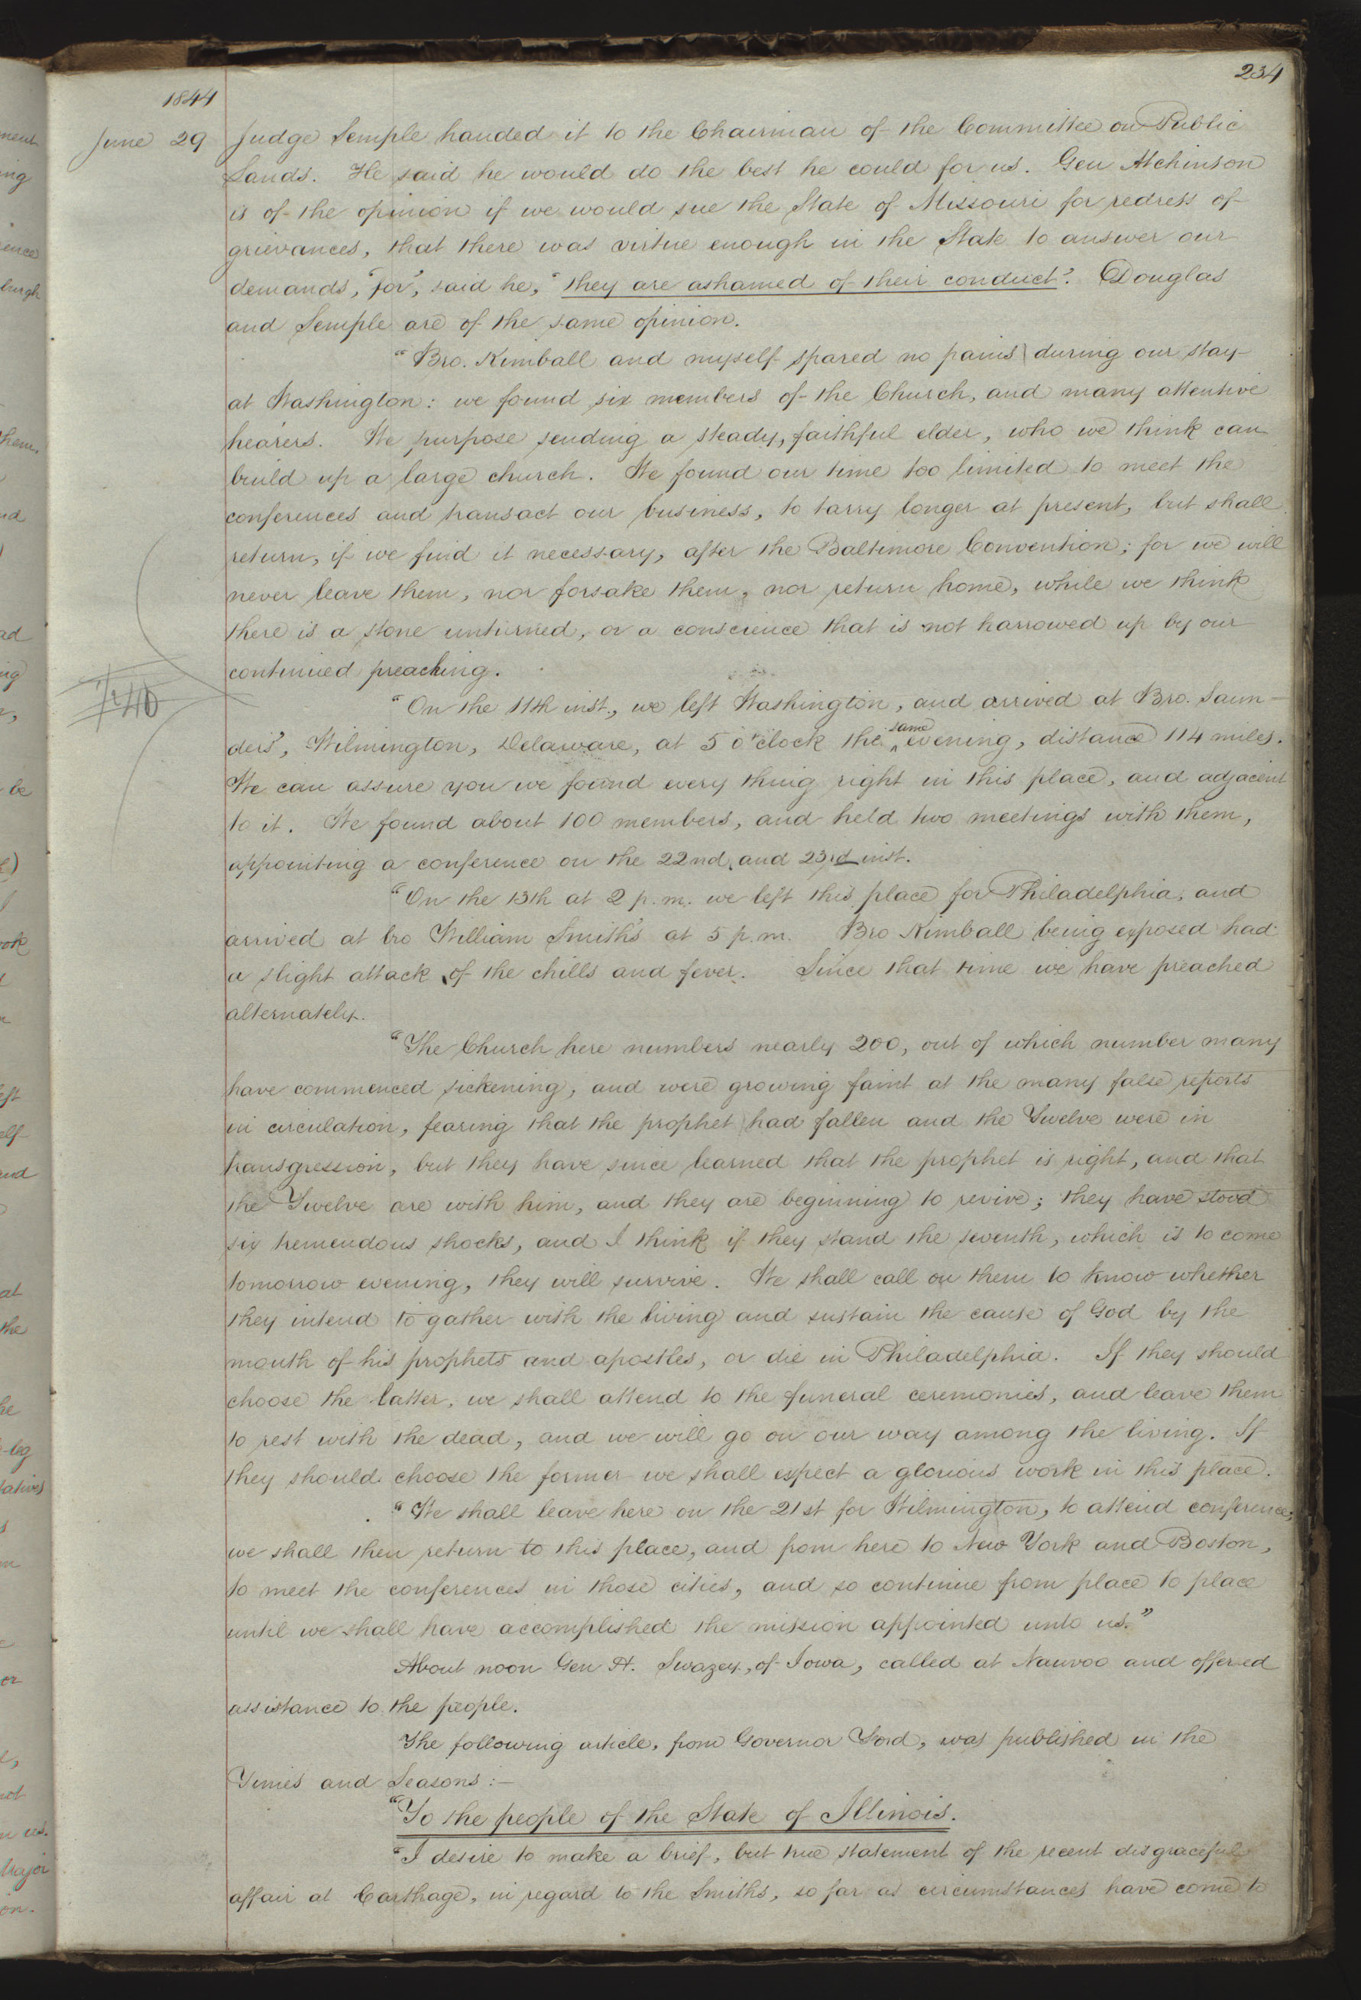 234
1844
June 29 Judge Semple handed it to the Chairman of the Committee on Public
Lands. He said he would do the best he could for us. Gen Atchinson
is of the opinion if we would sue the State of Missouri for redress of
grievances, that there was virtue enough in the State to answer our
demands, "for", said he, "they are ashamed of their conduct". Douglas
and Semple are of the same opinion.
"Bro. Kimball and myself spared no pains during our stay
at Washington: we found six members of the Church, and many attentive
hearers. We purpose sending a steady, faithful elder, who we think can
build up a large church. We found our time too limited to meet the
conferences and transact our business, to tarry longer at present, but shall
return, if we find it necessary, after the Baltimore Convention; for we will
never leave them, nor forsake them, nor return home, while we think
there is a stone unturned, or a conscience that is not harrowed up by our
continued preaching.
"On the 11th inst., we left Washington, and arrived at Bro. Saun-
ders', Wilmington, Delaware, at 5 o'clock the same evening, distance 114 miles.
We can assure you we found every thing right in this place, and adjacent
to it. We found about 100 members, and held two meetings with them,
appointing a conference on the 22nd and 23rd inst.
"On the 13th at 2 p.m. we left this place for Philadelphia, and
arrived at bro William Smith's at 5 p.m. Bro Kimball being exposed had
a slight attack of the chills and fever. Since that time we have preached
alternately.
"The Church here numbers nearly 200, out of which number many
have commenced sickening, and were growing faint at the many false reports
in circulation, fearing that the prophet had fallen and the Twelve were in
transgression, but they have since learned that the prophet is right, and that
the Twelve are with him, and they are beginning to revive; they have stood
six tremendous shocks, and I think if they stand the seventh, which is to come
tomorrow evening, they will survive. We shall call on them to know whether
they intend to gather with the living and sustain the cause of God by the
mouth of his prophets and apostles, or die in Philadelphia. If they should
choose the latter, we shall attend to the funeral ceremonies, and leave them
to rest with the dead, and we will go on our way among the living. If
they should choose the former we shall expect a glorious work in this place.
"We shall leave here on the 21st for Wilmington, to attend conference;
we shall then return to this place, and from here to New York and Boston,
to meet the conferences in those cities, and so continue from place to place
until we shall have accomplished the mission appointed unto us."
About noon Gen H. Swazey, of Iowa, called at Nauvoo and offered
assistance to the people.
The following article, from Governor Ford, was published in the
Times and Seasons:—
"To the people of the State of Illinois.
"I desire to make a brief, but true statement of the recent disgraceful
affair at Carthage, in regard to the Smiths, so far as circumstances have come to